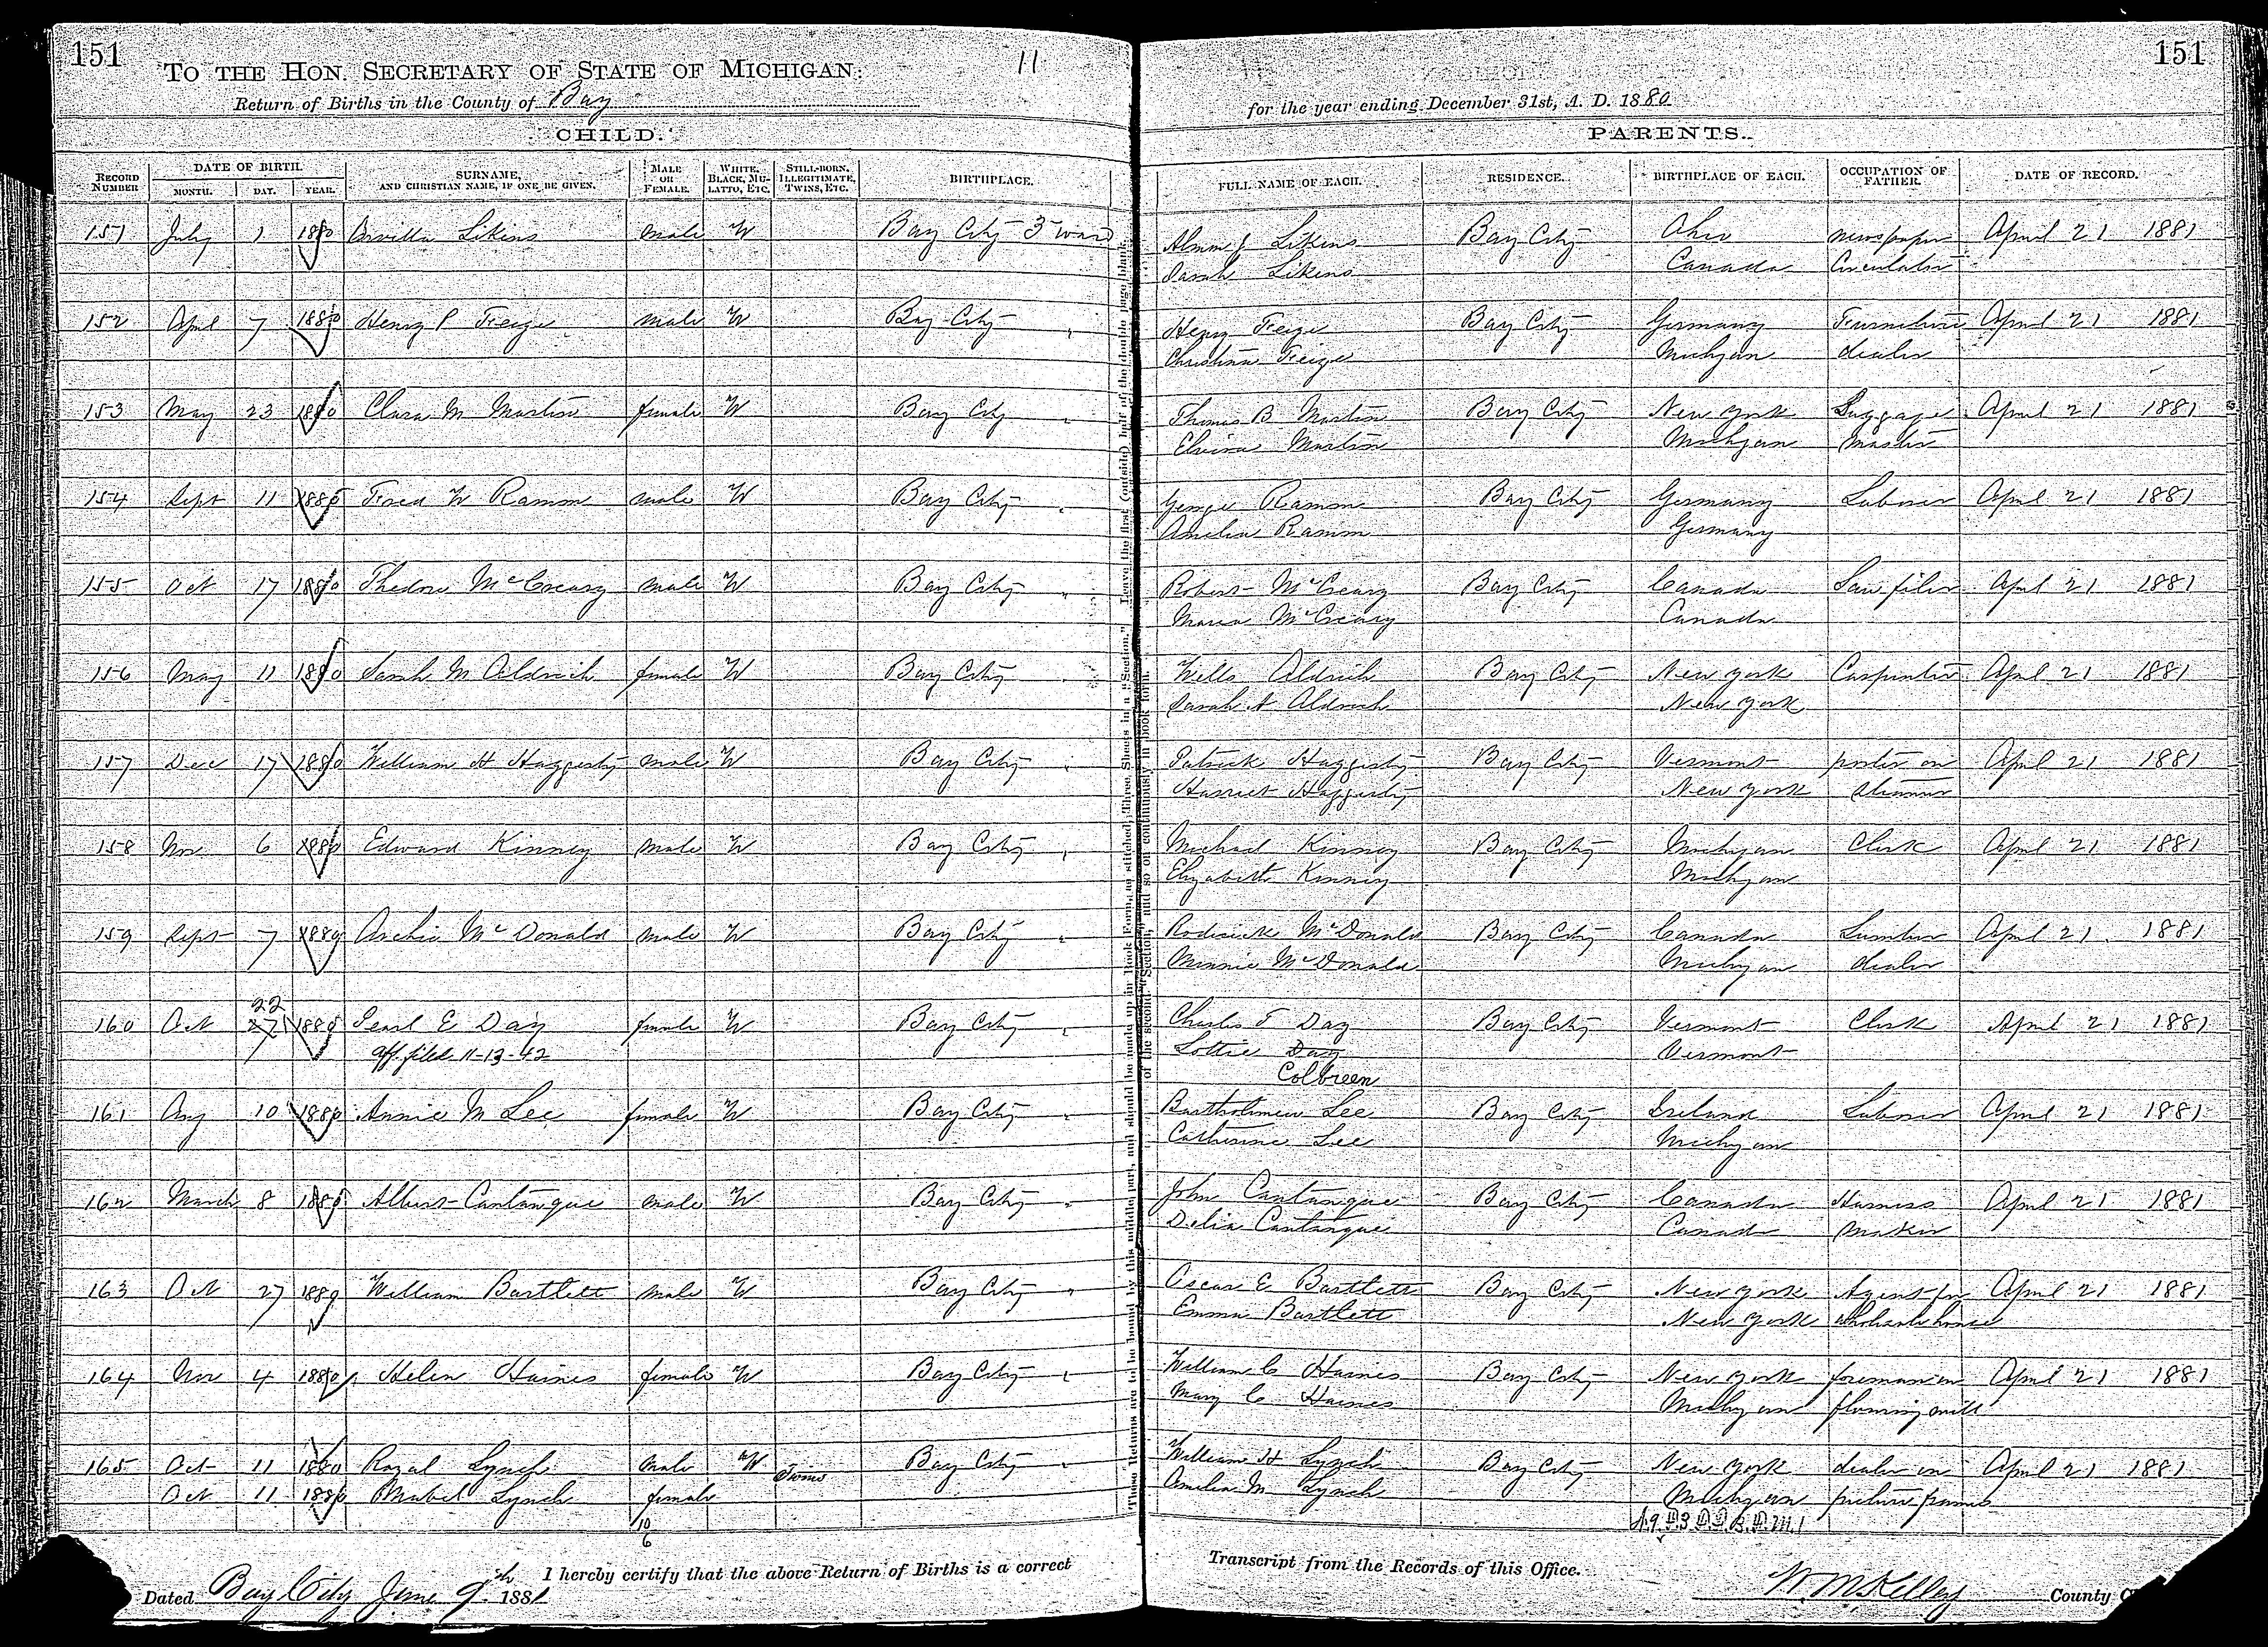 151
TO THE HON. SECRETARY OF STATE OF MICHIGAN:
11
Return of Births in the County of Bay
CHILD.
RECORD NUMBER DATE OF BIRTH. MONTH. DAY. YEAR. SURNAME, AND CHRISTIAN NAME, IF ONE BE GIVEN. MALE OR FEMALE. WHITE, BLACK, MULATTO, ETC. STILL-BORN, ILLEGITIMATE, TWINS, ETC. BIRTHPLACE.
151 July 1 1880 Likins male W Bay City 3 ward
152 Apl 7 1880 Henry P Feige male W Bay City "
153 May 23 1880 Clara M Martin female W Bay City "
154 Sept 11 1880 Fred W Ramm male W Bay City "
155 Oct 17 1880 Thedore McCreary male W Bay City "
156 May 11 1880 Sarah M Aldrich female W Bay City "
157 Dec 17 1880 William H Haggerty male W Bay City "
158 Nov 6 1880 Edward Kinney male W Bay City "
159 Sept 7 1880 Archie McDonald male W Bay City "
22
160 Oct 27 1880 Pearl E Day female W Bay City "
aff. filed 11-13-42
161 Aug 10 1880 Annie M Lee female W Bay City "
162 March 8 1880 Albert Cantanque male W Bay City "
163 Oct 27 1880 William Bartlett male W Bay City "
164 Nov 4 1880 Helen Haines female W Bay City "
165 Oct 11 1880 Royal Lynch male W Twins Bay City "
Oct 11 1880 Mabel Lynch female
10
6
I hereby certify that the above Return of Births is a correct
Dated Bay City June 9th 1881
Leave the first (outside) half of the double page blank.
These Returns are to be bound by this middle part, and should be made up in Book Form, as stitched, Three Sheets in a "Section,"
of the second "Section," and so on continuously in book form.
151
for the year ending December 31st, A. D. 1880
PARENTS.
FULL NAME OF EACH. RESIDENCE. BIRTHPLACE OF EACH. OCCUPATION OF FATHER. DATE OF RECORD.
J Likins Bay City Ohio newspaper April 21 1881
Sarah Likins Canada Circulator
Henry Feige Bay City Germany Furniture April 21 1881
Christina Feige Michigan dealer
Thomas B Martin Bay City New York Luggage April 21 1881
Elvira Martin Michigan Master
George Ramm Bay City Germany Laborer April 21 1881
Amelia Ramm Germany
Robert McCreary Bay City Canada Saw filer April 21 1881
Maria McCreary Canada
Wells Aldrich Bay City New York Carpenter April 21 1881
Sarah A Aldrich New York
Patrick Haggerty Bay City Vermont porter on April 21 1881
Harriet Haggerty New York Steamer
Michael Kinney Bay City Michigan Clerk April 21 1881
Elizabeth Kinney Michigan
Roderick McDonald Bay City Canada Lumber April 21 1881
Minnie McDonald Michigan dealer
Charles T Day Bay City Vermont Clerk April 21 1881
Lottie Day Vermont
Colbreen
Bartholomew Lee Bay City Ireland Laborer April 21 1881
Catherine Lee Michigan
John Cantanque Bay City Canada Harness April 21 1881
Delia Cantanque Canada Maker
Oscar E Bartlett Bay City New York Agent for April 21 1881
Emma Bartlett New York wholesale house
William C Haines Bay City New York foreman in April 21 1881
Mary C Haines Michigan planing mill
William H Lynch Bay City New York dealer in April 21 1881
Amelia M Lynch Michigan picture frames
Transcript from the Records of this Office.
W. McKelley County